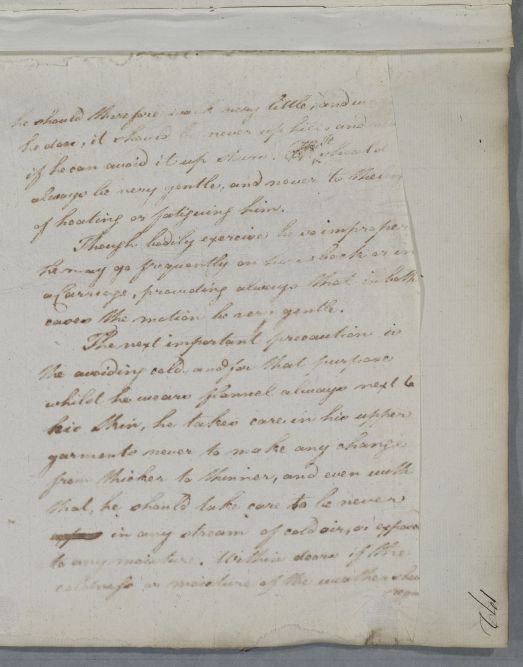 he should therefore walk very little, and
he does, it should be never up hill, and
if he can avoid it up stairs. It should
always be very gentle, and never to the
of heating or fatiguing him.
Though bodily exercise be so improper
he may go frequently on horseback or in
a Carriage, providing always that in both
cases the motion be very gentle.
The next important precaution is
the avoiding cold, and for that purpose
whilst he wears flannel always next to
his Skin, he takes care in his upper
garments never to make any change
from thicker to thinner, and even with
that, he should take care to be never
in any stream of cold air, or
to any moisture. Within doors if the
coldness or moisture of the weather